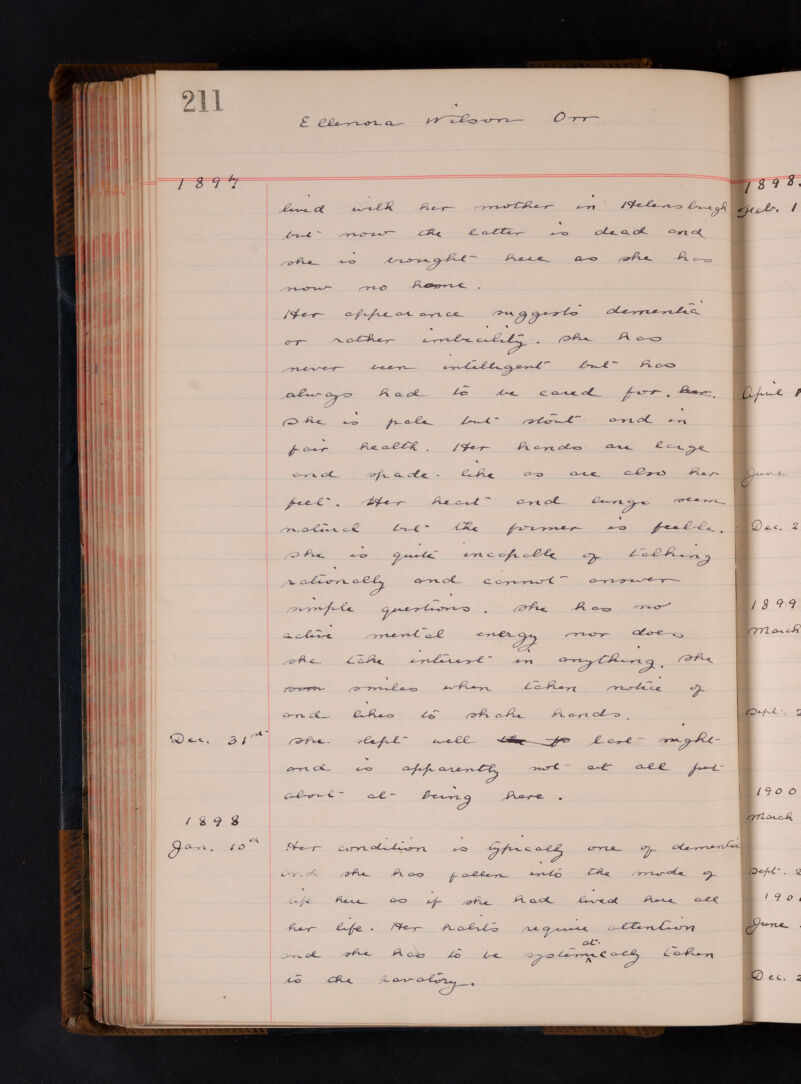 211
Ellenora Wilson Orr
1897
lived with her mother in Helensburgh
but now the latter is dead and
she is brought here as she has
now no home.
Her appearance suggests dementia
or rather imbecility. She has
never been intelligent but has
always had to be cared for. her.
She is pale but stout and in
fair health. Her hands are large
and spade-like as are also her
feet. Her heart and lungs seem
natural but the former is feeble.
She is quite incapable of talking
rationally and cannot answer
simple questions. She has no
active mental energy nor does
she take interest in anything. She
smiles when taken notice of
and likes to shake hands.
Dec. 31st She slept well the last night
and is apparently not at all put
about at being here.
1898
Jan. 10th Her condition is typically one of dementia
and she has fallen into the mode of
life here as if she had lived here all
her life. Her habits require attention
and she has to be systematically taken
to the lavatory.
1898.
Feb. 1
April
June
Dec. 2
1899
March
Sept. 2
1900
March
Sept. 2
190
June
Dec. 2